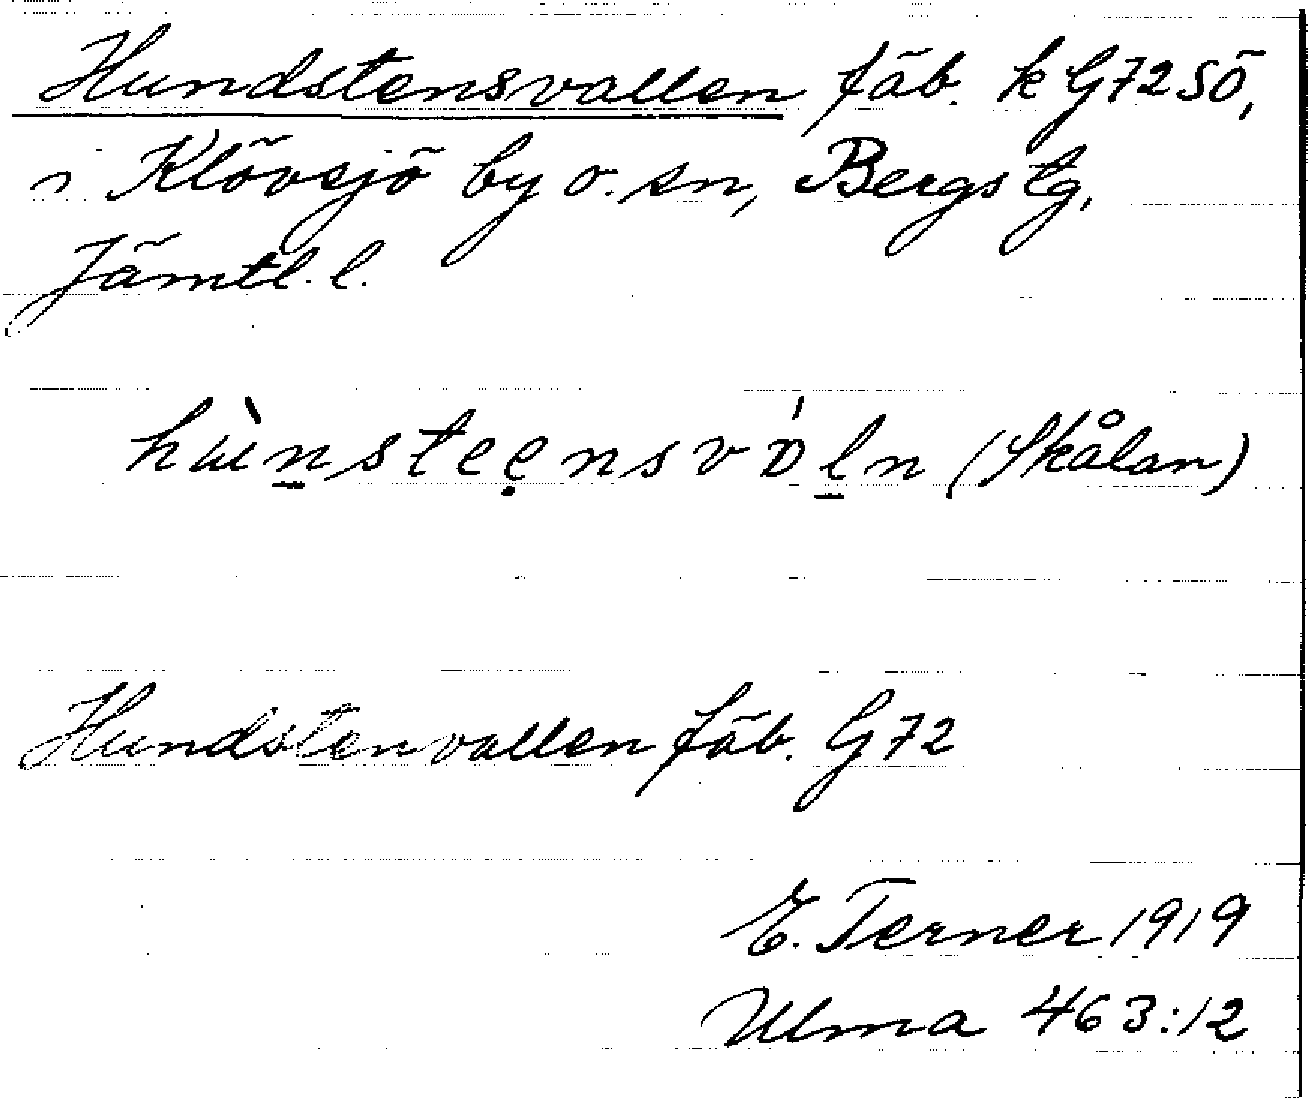 Hundstensvallen fäb. k G72 SÖ,
i Klövsjö by o. sn, Bergs tg,
Jämtl. l.
hɯ̀n̠steẹnsvɒ́l̠n (Skålan)
Hundstenvallen fäb. G72
E. Terner 1919
Ulma 463:12